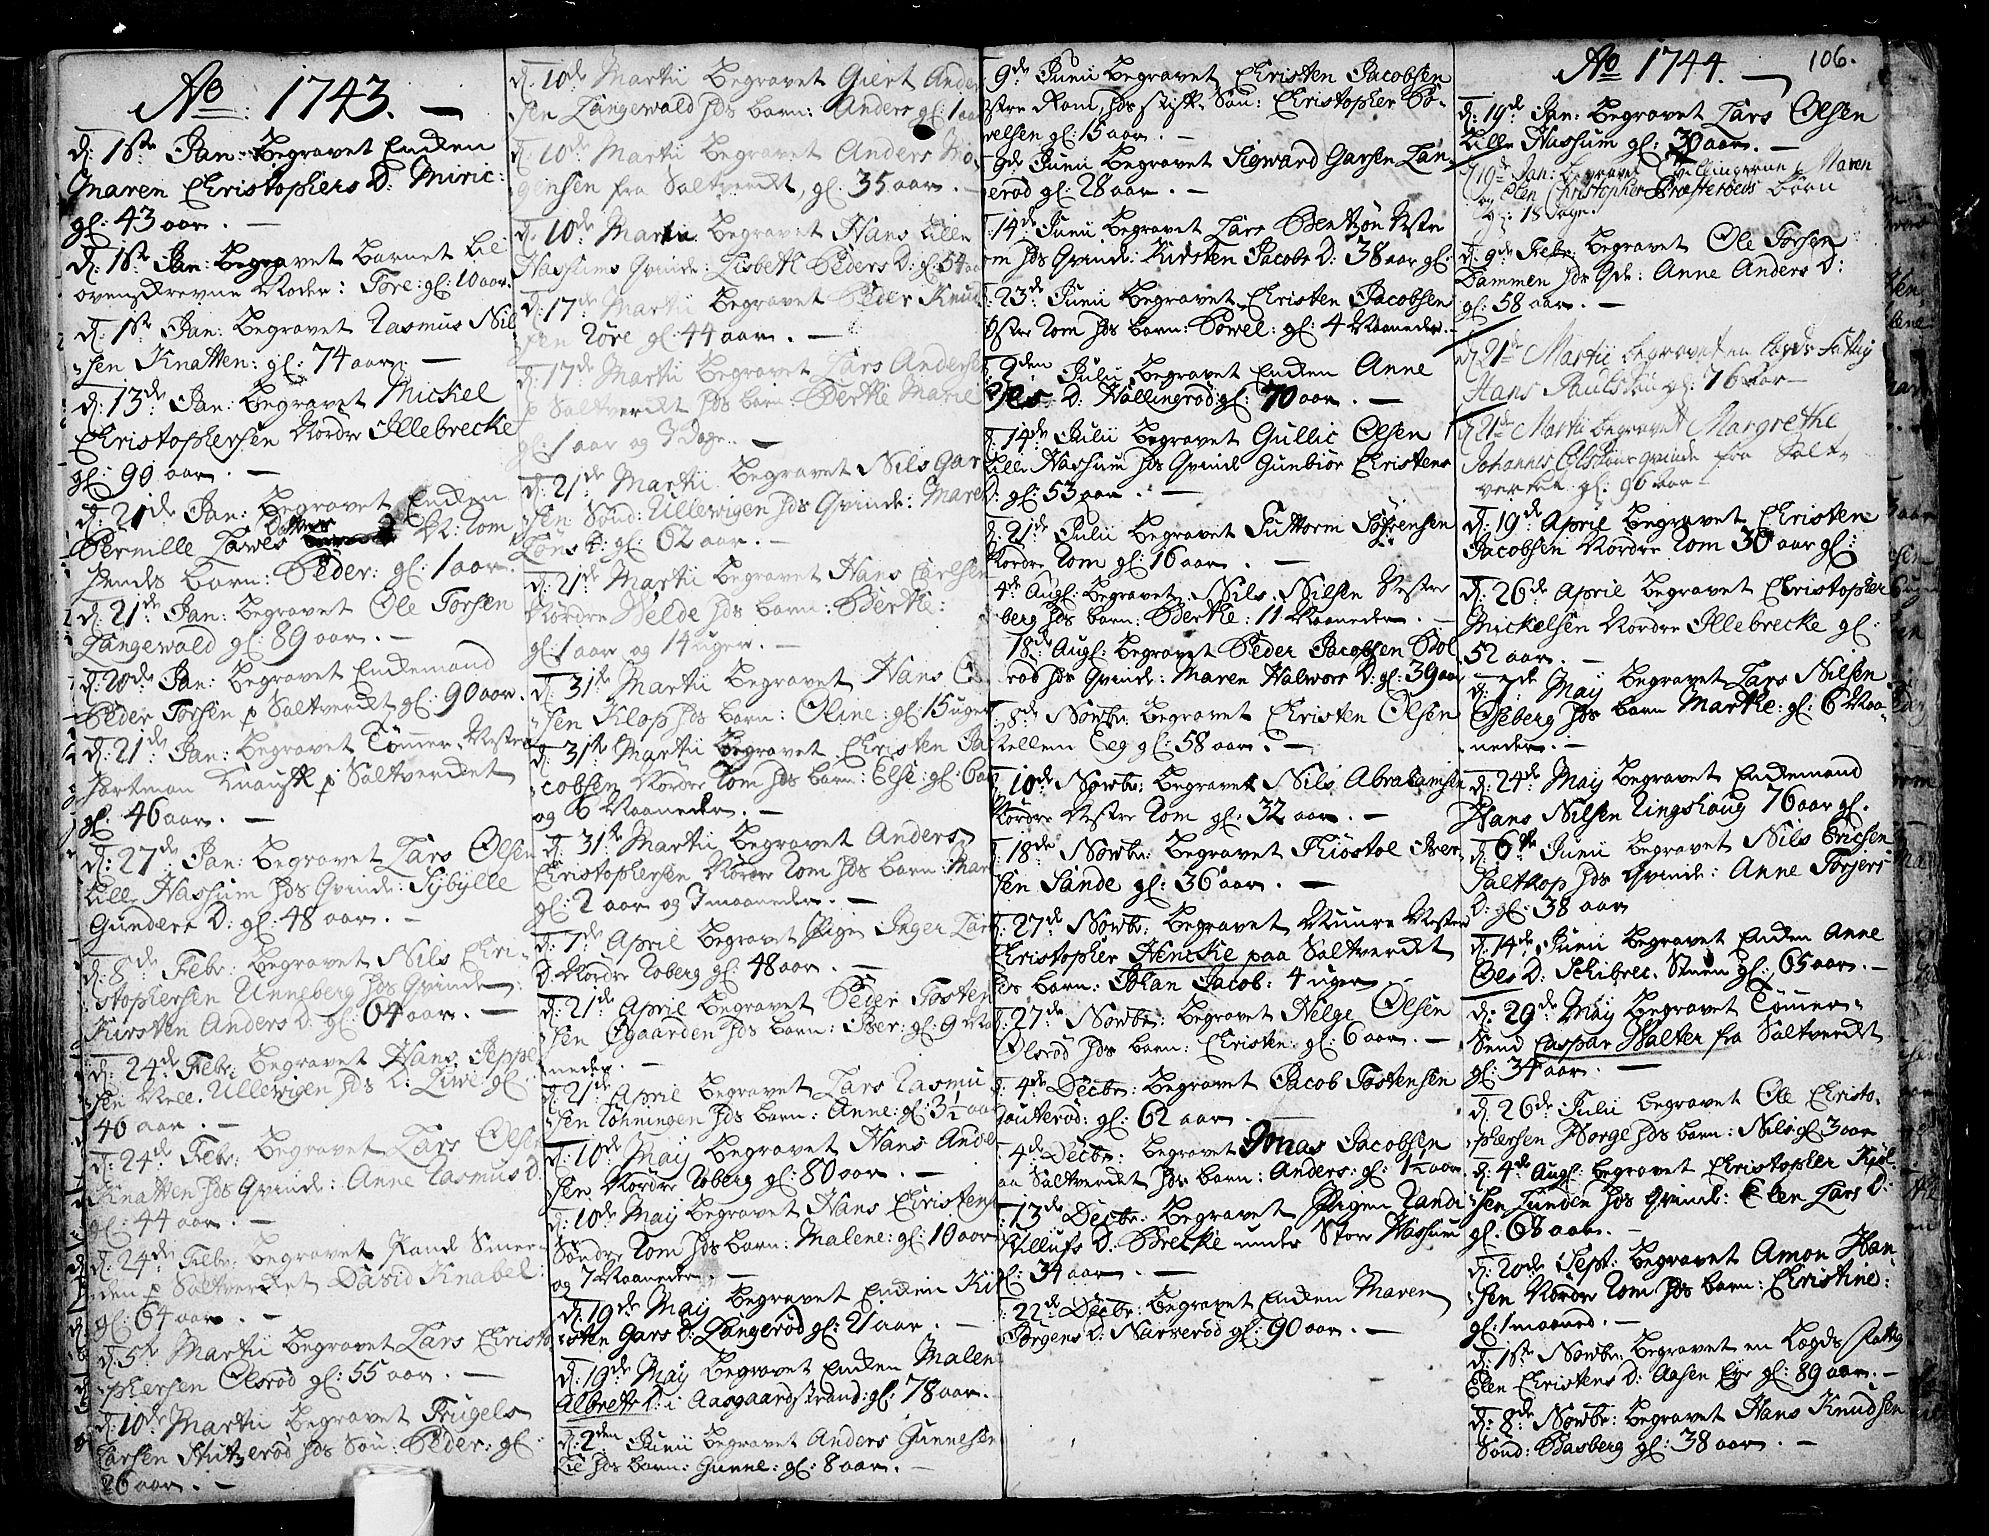 Ao: 1743. —
d: 1ste Jan: begravet Enken
Maren Christophers D: Miric:
gl: 43 aar. —
d: 1ste Jan: begravet barnet til
ovenskrevne Moder: Tore: gl: 10 aar.
d: 1ste Jan: begravet Rasmus Nil
sen Knatten: gl: 74 aar. —
d: 13de Jan: begravet Mickel
Christophersen Nordre Illebrecke
gl: 90 aar. —
d: 21de Jan: begravet Enken
Pernille Lares Datter Vt: Rom
hendes barn: Peder: gl: 1 aar.
d: 21de Jan: begravet Ole Torsen
Langewald gl: 89 aar. —
d: 20de Jan: begravet Enkemand
Peder Torsen p Saltverket gl: 90 aar.
d: 21de Jan: begravet Tømmer Mester
Hartman Knaust p Saltverket
gl: 46 aar. —
d: 27de Jan: begravet Lars Olsen
Lille Hassum hds Qvinde: Sybylle
Gunders D: gl: 48 aar. —
d: 8de Febr: begravet Nils Chri-
stophersen Unneberg hds Qvinde:
Kirsten Anders D: gl: 64 aar. —
d: 24de Febr: begravet Hans Jeppe
sen Mell. Ullewigen hds D: Live: gl:
40 aar. —
d: 24de Febr: begravet Lars Olsen
Knatten hds Qvinde: Anne Rasmus D:
gl: 44 aar. —
d: 24de Febr: begravet Pande Smer-
den p Saltverket David Knabel:
gl: 64 aar. —
d: 5te Martii begravet Lars Christo
phersen Olsrød gl: 55 aar. —
d: 10de Martii begravet Trugels
Larsen Stutzerød hds Søn: Peder: gl:
26 aar. —
d: 10de Martii begravet Giert Ander
sen Langewald hds barn: Anders gl: 1 aar
d: 10de Martii begravet Anders Mo-
gensen fra Saltverket, gl: 35 aar. —
d: 10de Martii begravet Hans Lille
Hassums Qvinde: Lisbeth Peders D: gl: 54 aar
d: 17de Martii begravet Peder Knud
sen Røre gl: 44 aar. —
d: 17de Martii begravet Lars Andersen
p Saltverket hds barn: Berthe Marie
gl: 1 aar og 3 Dage. —
d: 21de Martii begravet Nils Gar
sen Sønd: Ullewigen hds Qvinde: Maren
Tøns D: gl: 62 aar. —
d: 21de Martii begravet Hans Carlsen
Nordre Welde hds barn: Berthe:
gl: 1 aar og 14 uger. —
d: 31te Martii begravet Hans
sen Klop hds barn: Oline: gl: 15 uger
d: 31te Martii begravet Christen Ja
cobsen Nordre Rom hds barn: Else: gl: 6 aar
og 6 Maaneder. —
d: 31te Martii begravet Anders
Christophersen Nordre Rom hds barn: Mari
gl: 2 aar og 7 maaneder. —
d: 7de April begravet Pigen Inger Lars
D: Nordre Roberg gl: 48 aar. —
d: 21de April begravet Peter Tosten
sen Øgaarden hds barn: Iver: gl: 9 Maa
neder. —
d: 21de April begravet Lars Rasmu
sen Løhningen hds barn: Anne: gl: 3½ aar
d: 10de May begravet Hans Ander
sen Nordre Roberg gl: 80 aar. —
d: 10de May begravet Hans Christens
Søndre Rom hds barn: Malene: gl: 10 aar
og 7 Maaneder. —
d: 19de May begravet Enken Ki
rsten Gars D: Langerød gl: 21 aar. —
d: 19de May begravet Enken Malen
Albrets D: i Aasgaardstrand: gl: 78 aar.
d: 2den Junii begravet Anders Gunnesen
Lie hds barn: Gunne: gl: 8 aar. —
9de Junii begravet Christen Jacobsen
Østre Rom, hds stifft Søn: Christopher Po-
velsen gl: 15 aar. —
9de Junii begravet Sigward Garsen Lan-
erød gl: 28 aar. —
14de Junii begravet Lars Bentzøn Vestre
om hds Qvinde: Kirsten Jacobs D: 38 aar gl:
23de Junii begravet Christen Jacobsen
Østre Rom hds barn: Powel: gl: 4 Maaneder.
9den Julii begravet Enken Anne
Oles D: Hallingerød gl: 70 aar. —
14de Julii begravet Gullic Olsen
Lille Hassum hds Qvinde Gunbiør Christens
D: gl: 53 aar. —
21de Julii begravet Guttorm Sørensen
Nordre Rom gl: 16 aar. —
4de Aug: begravet Nils Nilsen Vestre
berg hds barn: Berthe: 11 Maaneder. —
18de Aug: begravet Peder Jacobsen Bol
rød hds Qvinde: Maren Halvors D: gl: 39 aar
8de Novbr: begravet Christen Olsen
Mellem Eeg gl: 58 aar. —
10de Novbr: begravet Nils Abrahamsen
Nordre Vestre Rom gl: 32 aar. —
18de Novbr: begravet Tiostol Iver
sen Sande gl: 36 aar. —
27de Novbr: begravet Muure Mester
Christopher Hencke paa Saltverket
hds barn: Johan Jacob: 4 uger —
27de Novbr: begravet Helge Olsen
Olsrød hds barn: Christen: gl: 6 aar. —
4de Decbr: begravet Jacob Tostensen
Gauterød: gl: 62 aar. —
4de Decbr: begravet Jonas Jacobsen
aa Saltverket hds barn: Anders: gl: 1½ aar.
13de Decbr: begravet Pigen Randi
Hellufs D: Brecke under Store Hassum
gl: 34 aar. —
22de Decbr: begravet Enken Maren
Jørgens D: Narverød gl: 90 aar. —
Ao 1744. — 106.
d: 19de Jan: begravet Lars Olsen
Lille Hassum gl: 30 aar. —
d 19de Jan: begravet tvillingerne Maren
og Elen Christopher Præsterbeds børn
gl: 18 dage.
d: 9de Febr: begravet Ole Torsen
Dammen hds Qde: Anne Anders D:
gl: 58 aar. —
d: 21de Martii begravet en lægds fattig
Hans Paulsøn gl: 76 aar —
d 21de Martii begravet Margrethe
Johannes Olsens qvinde fra Salt-
verket gl: 96 aar
d: 19de April begravet Christen
Jacobsen Nordre Rom 30 aar gl:
d: 26de April begravet Christopher
Mickelsen Nordre Illebrecke gl:
52 aar. —
d: 7de May begravet Lars Nilsen
Oseberg hds barn Marthe: gl: 6 Maa-
neder. —
d: 24de May begravet Enkemand
Hans Nilsen Ringshaug 76 aar gl.
d: 6te Junii begravet Nils Ericsen
Saltkop hds Qvinde: Anne Torgers
D: gl: 38 aar
d: 14de Junii begravet Enken Anne
Oles D: Schibrec. Stuen gl: 65 aar. —
d: 29de May begravet Tømmer-
Svend Caspar Walter fra Saltverket
gl: 34 aar. —
d: 26de Julii begravet Ole Christo-
phersen Horge hds barn: Nils gl: 3 aar
d: 4de Aug: begravet Christopher Kiøl-
sen Lunden hds Qvinde: Elen Lars D:
gl: 68 aar. —
d: 20de Sept: begravet Amon Han
sen Nordre Rom hds barn: Christine:
gl: 1 maaned. —
d: 1ste Novbr: begravet en Lægds fattig
Elen Christens D: Aasen Eye gl: 89 aar. —
d: 8de Novbr: begravet Hans Knudsen
Sønd: Basberg gl: 38 aar. —